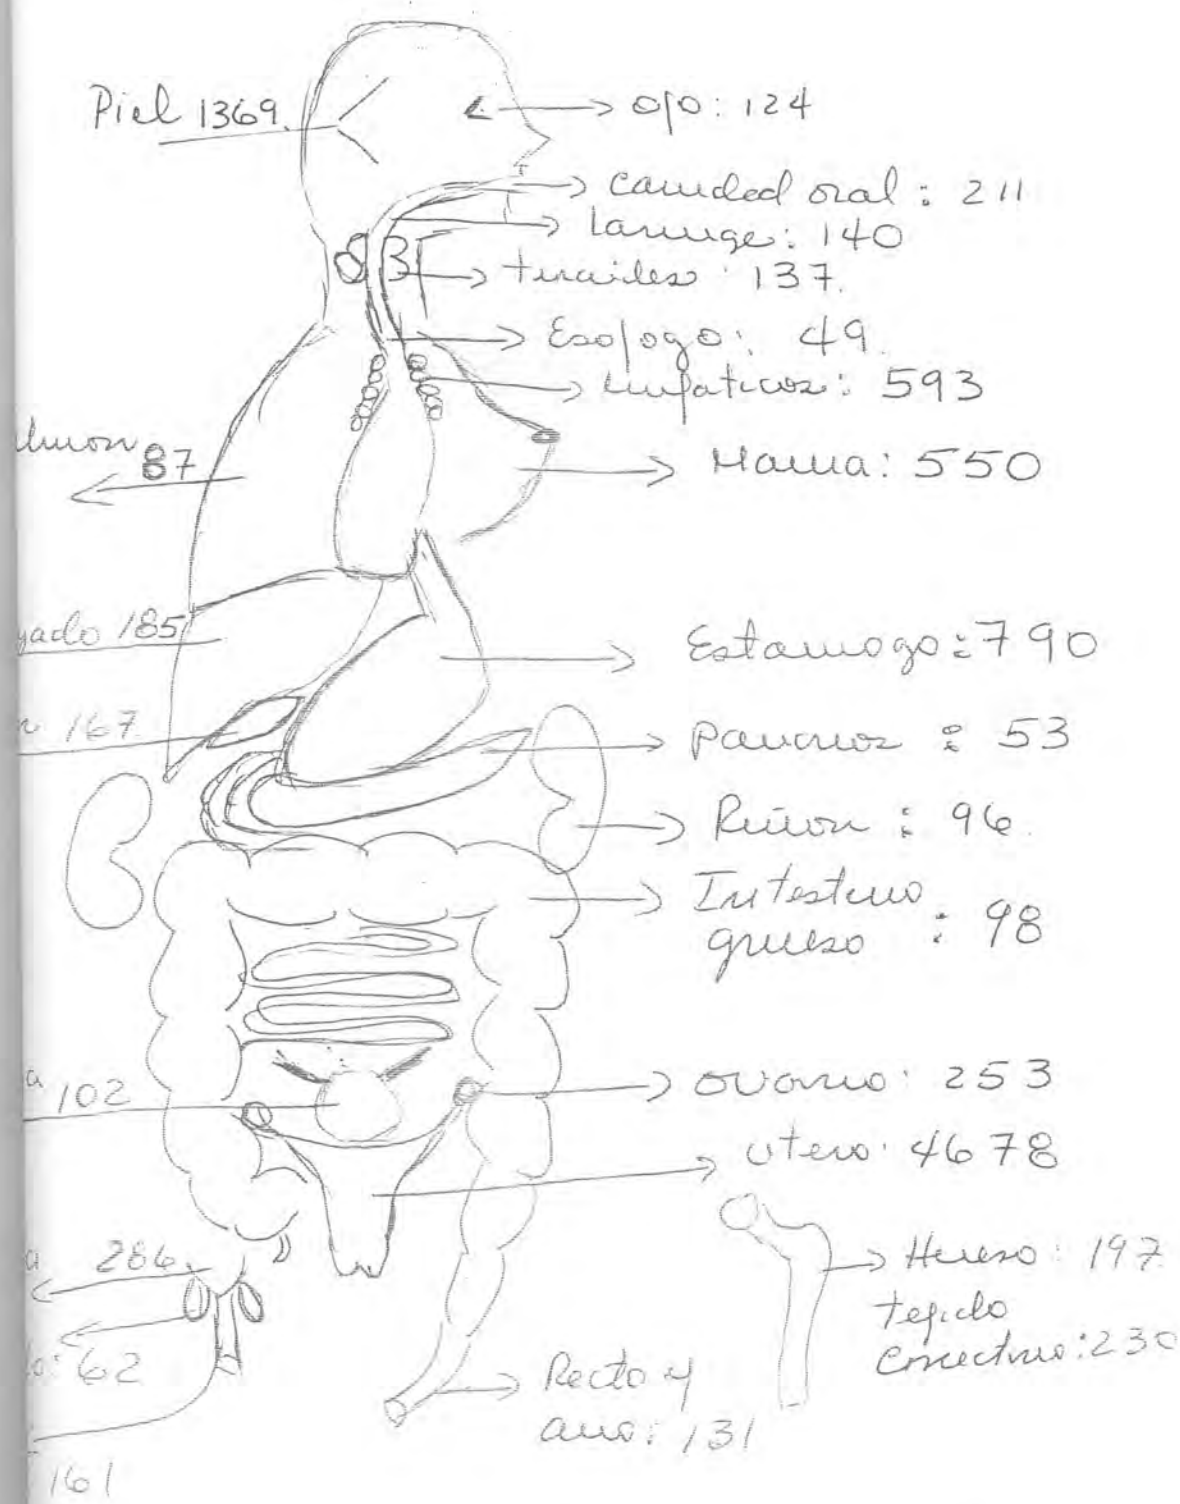 Piel 1369.
ojo: 124
cavidad oral: 211
Laringe: 140
tiroides 137.
Esofogo: 49
linfaticos: 593
lmon 87
Mama: 550
gado 185
Estomago: 790
167
pancrios : 53
Riñon : 96
Intestino
grueso : 98
a 102
ovario: 253
utero: 4678
a 286
Hueso: 197
tejido
conectivo: 230
o: 62
Recto y
ano: 131
161